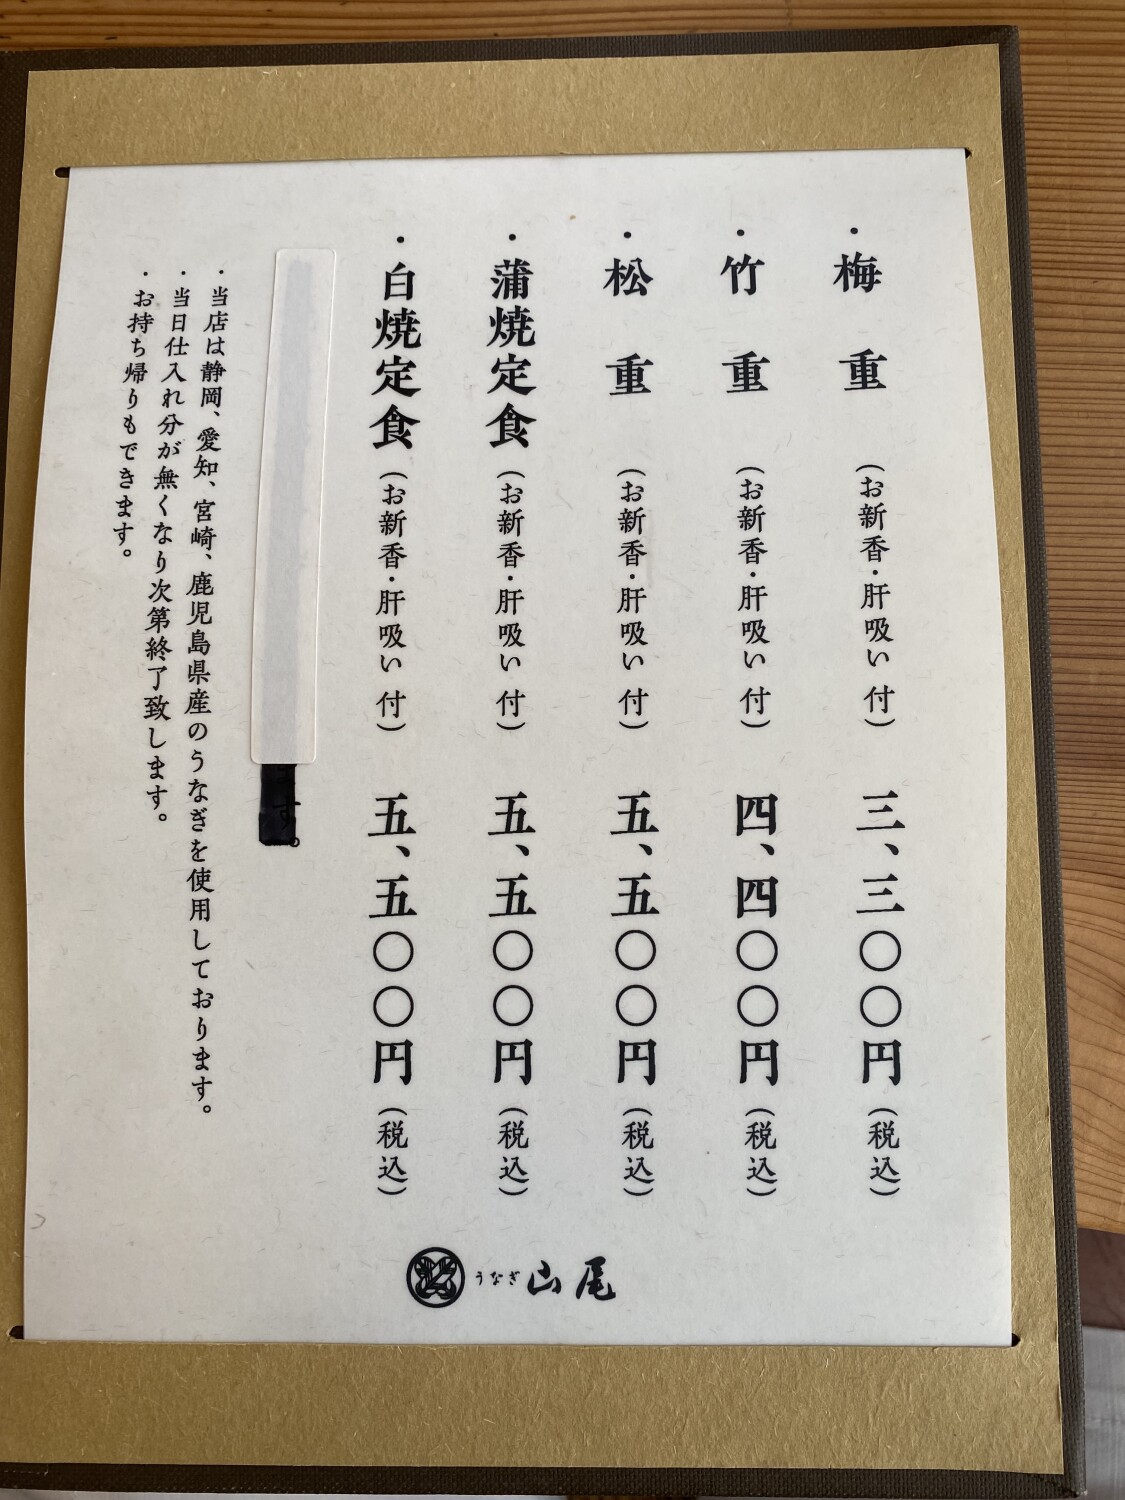 ・梅重（お新香・肝吸い付）三、三〇〇円（税込）
・竹重（お新香・肝吸い付）四、四〇〇円（税込）
・松重（お新香・肝吸い付）五、五〇〇円（税込）
・蒲焼定食（お新香・肝吸い付）五、五〇〇円（税込）
・白焼定食（お新香・肝吸い付）五、五〇〇円（税込）
す。
・当店は静岡、愛知、宮崎、鹿児島県産のうなぎを使用しております。
・当日仕入れ分が無くなり次第終了致します。
・お持ち帰りもできます。
うなぎ 山尾